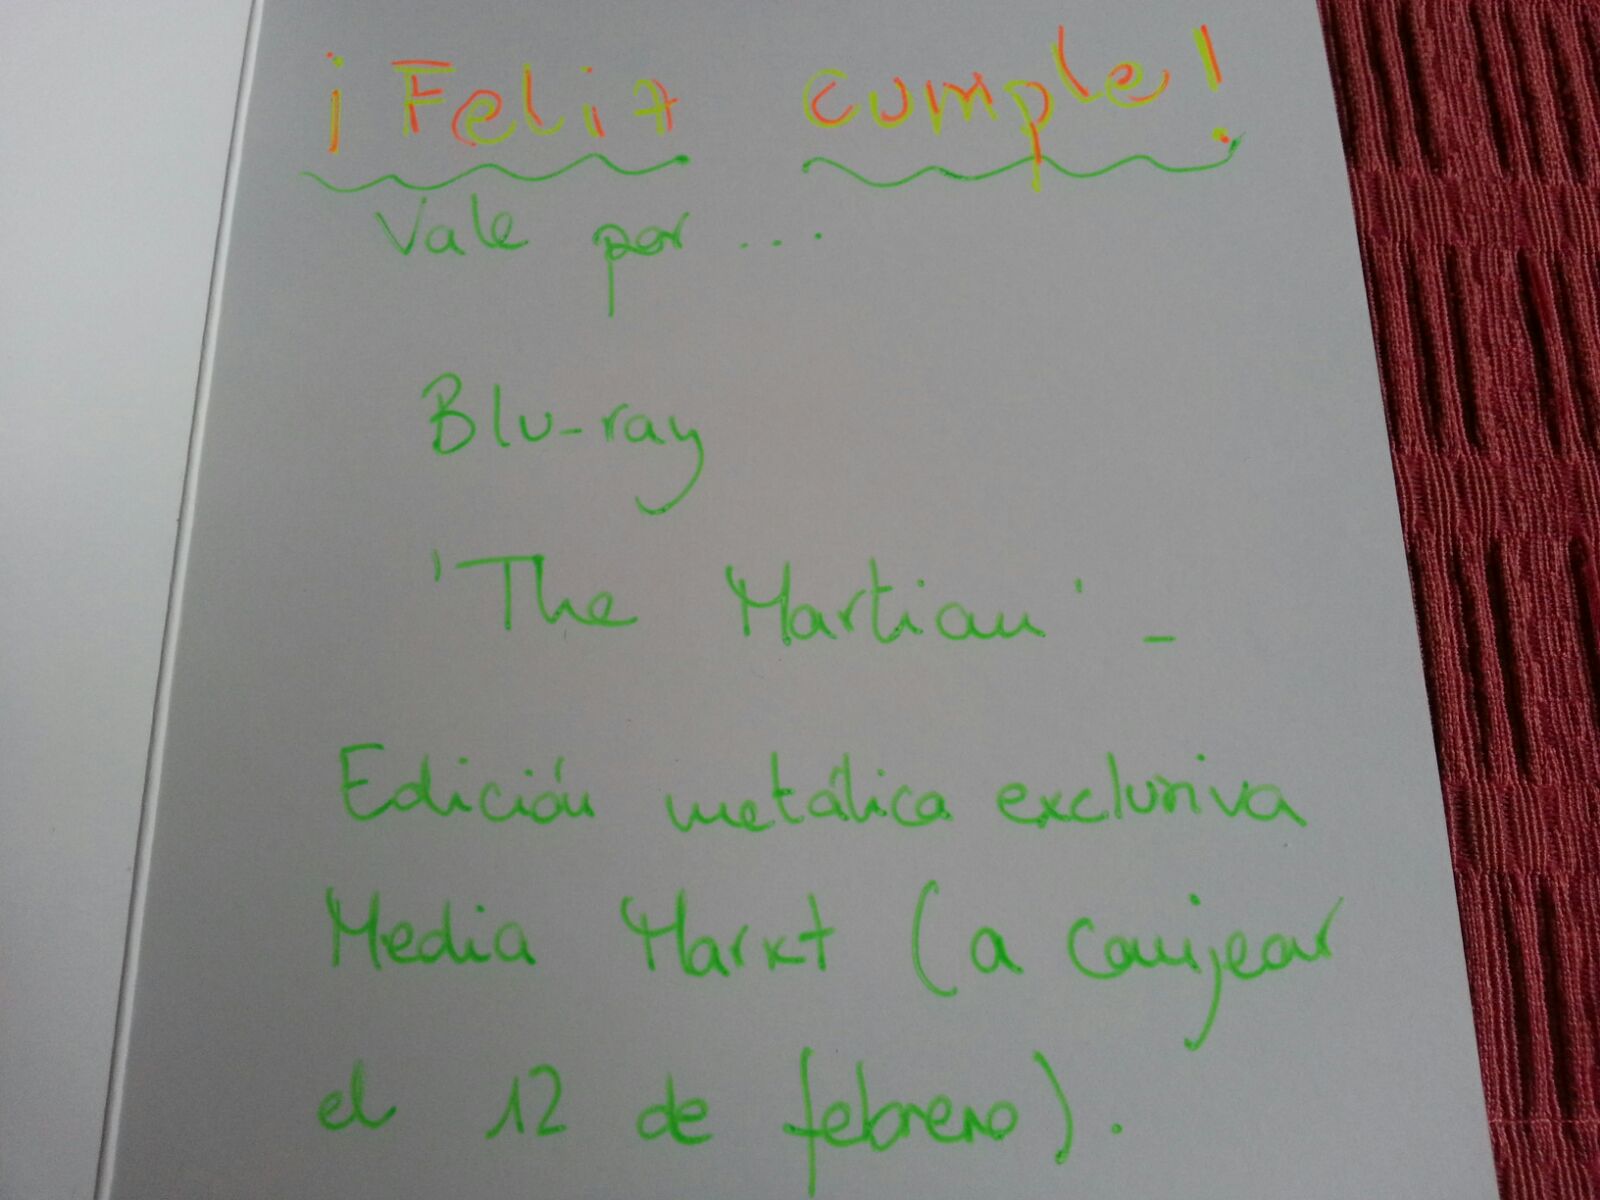 ¡Feliz cumple!
Vale por ...
Blu-ray
'The Martian' -
Edición metálica exclusiva
Media Markt (a canjear
el 12 de febrero).